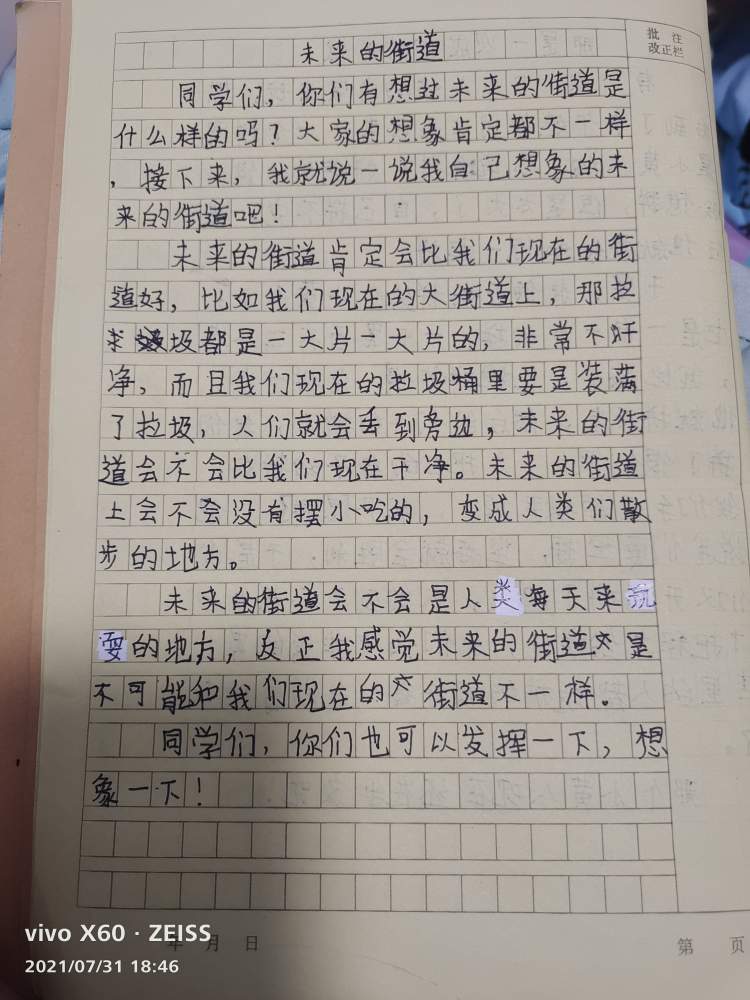 批注
改正栏
未来的街道
同学们，你们有想过未来的街道是
什么样的吗？大家的想象肯定都不一样
，接下来，我就说一说我自己想象的未
来的街道吧！
未来的街道肯定会比我们现在的街
道好，比如我们现在的大街道上，那垃
圾都是一大片一大片的，非常不干
净，而且我们现在的垃圾桶里要是装满
了垃圾，人们就会丢到旁边，未来的街
道会不会比我们现在干净。未来的街道
上会不会没有摆小吃的，变成人类们散
步的地方。
未来的街道会不会是人类每天来玩
耍的地方，反正我感觉未来的街道是
不可能和我们现在的街道不一样。
同学们，你们也可以发挥一下，想
象一下！
年 月 日
第 页
vivo X60 · ZEISS
2021/07/31 18:46